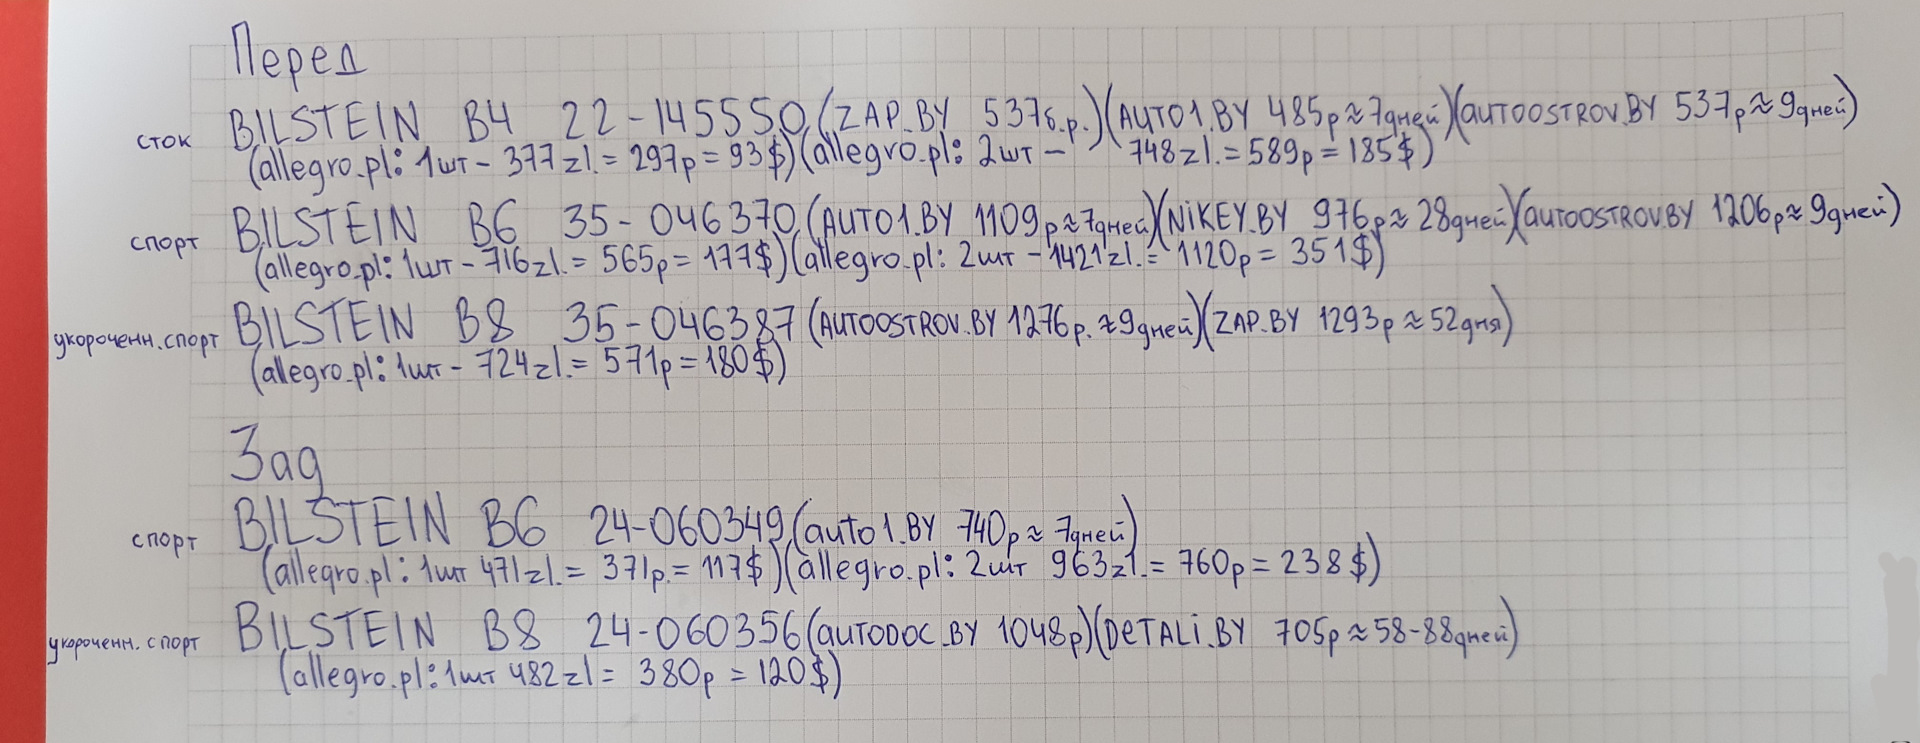 Перед
сток BILSTEIN B4 22-145550 (ZAP.BY 537б.р.)(AUTO1.BY 485р≈7дней)(AUTOOSTROV.BY 537р≈9дней)
(allegro.pl: 1шт - 377zl. = 297р = 93$)(allegro.pl: 2шт - 748zl. = 589р = 185$)
спорт BILSTEIN B6 35-046370 (AUTO1.BY 1109р≈7дней)(NiKEY.BY 976р≈28дней)(AUTOOSTROV.BY 1206р≈9дней)
(allegro.pl: 1шт - 716zl. = 565р = 177$)(allegro.pl: 2шт - 1421zl. = 1120р = 351$)
укороченн.спорт BILSTEIN B8 35-046387 (AUTOOSTROV.BY 1276р.≈9дней)(ZAP.BY 1293р≈52дня)
(allegro.pl: 1шт - 724zl. = 571р = 180$)
Зад
спорт BILSTEIN B6 24-060349 (auto1.BY 740р≈7дней)
(allegro.pl: 1шт 471zl. = 371р. = 117$)(allegro.pl: 2шт 963zl. = 760р = 238$)
укороченн. спорт BILSTEIN B8 24-060356 (AUTODOC.BY 1048р)(DETALi.BY 705р≈58-88дней)
(allegro.pl: 1шт 482zl = 380р = 120$)